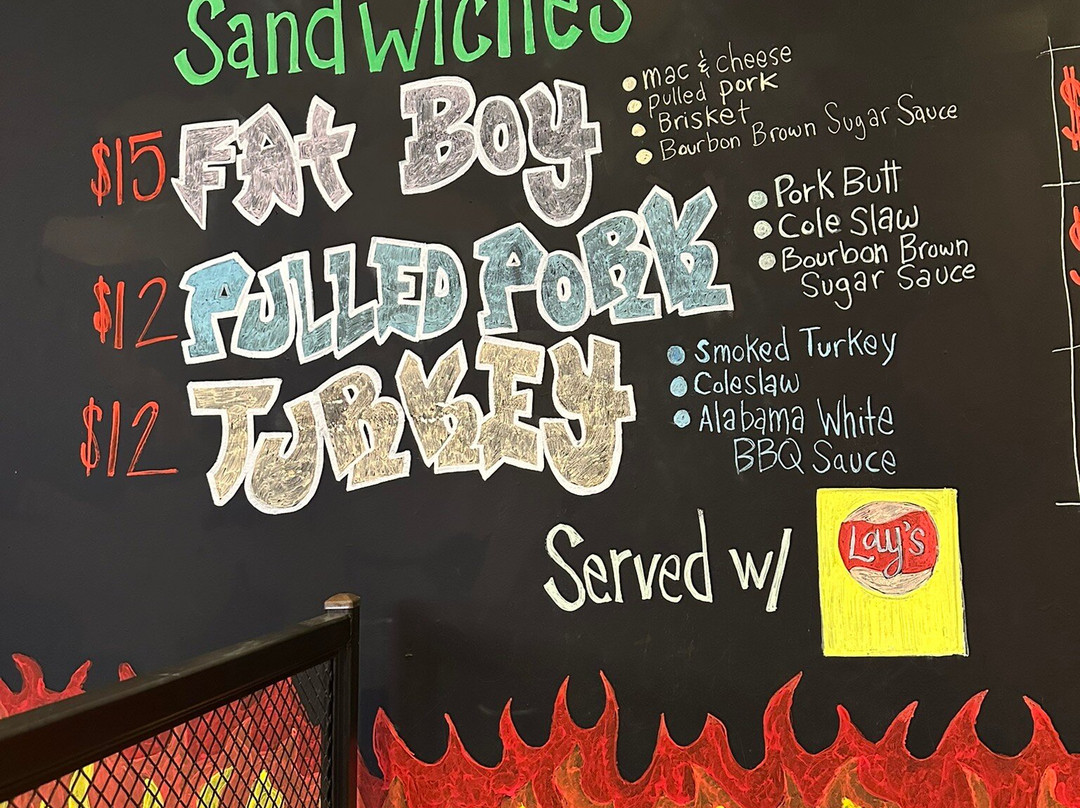 Sandwiches
$15 FAt BOY
• mac & cheese
• pulled pork
• Brisket
• Bourbon Brown Sugar Sauce
$12 PULLED PORK
• Pork Butt
• Cole Slaw
• Bourbon Brown
Sugar Sauce
$12 TURKEY
• Smoked Turkey
• Coleslaw
• Alabama White
BBQ Sauce
Served w/ Lay's
$
$